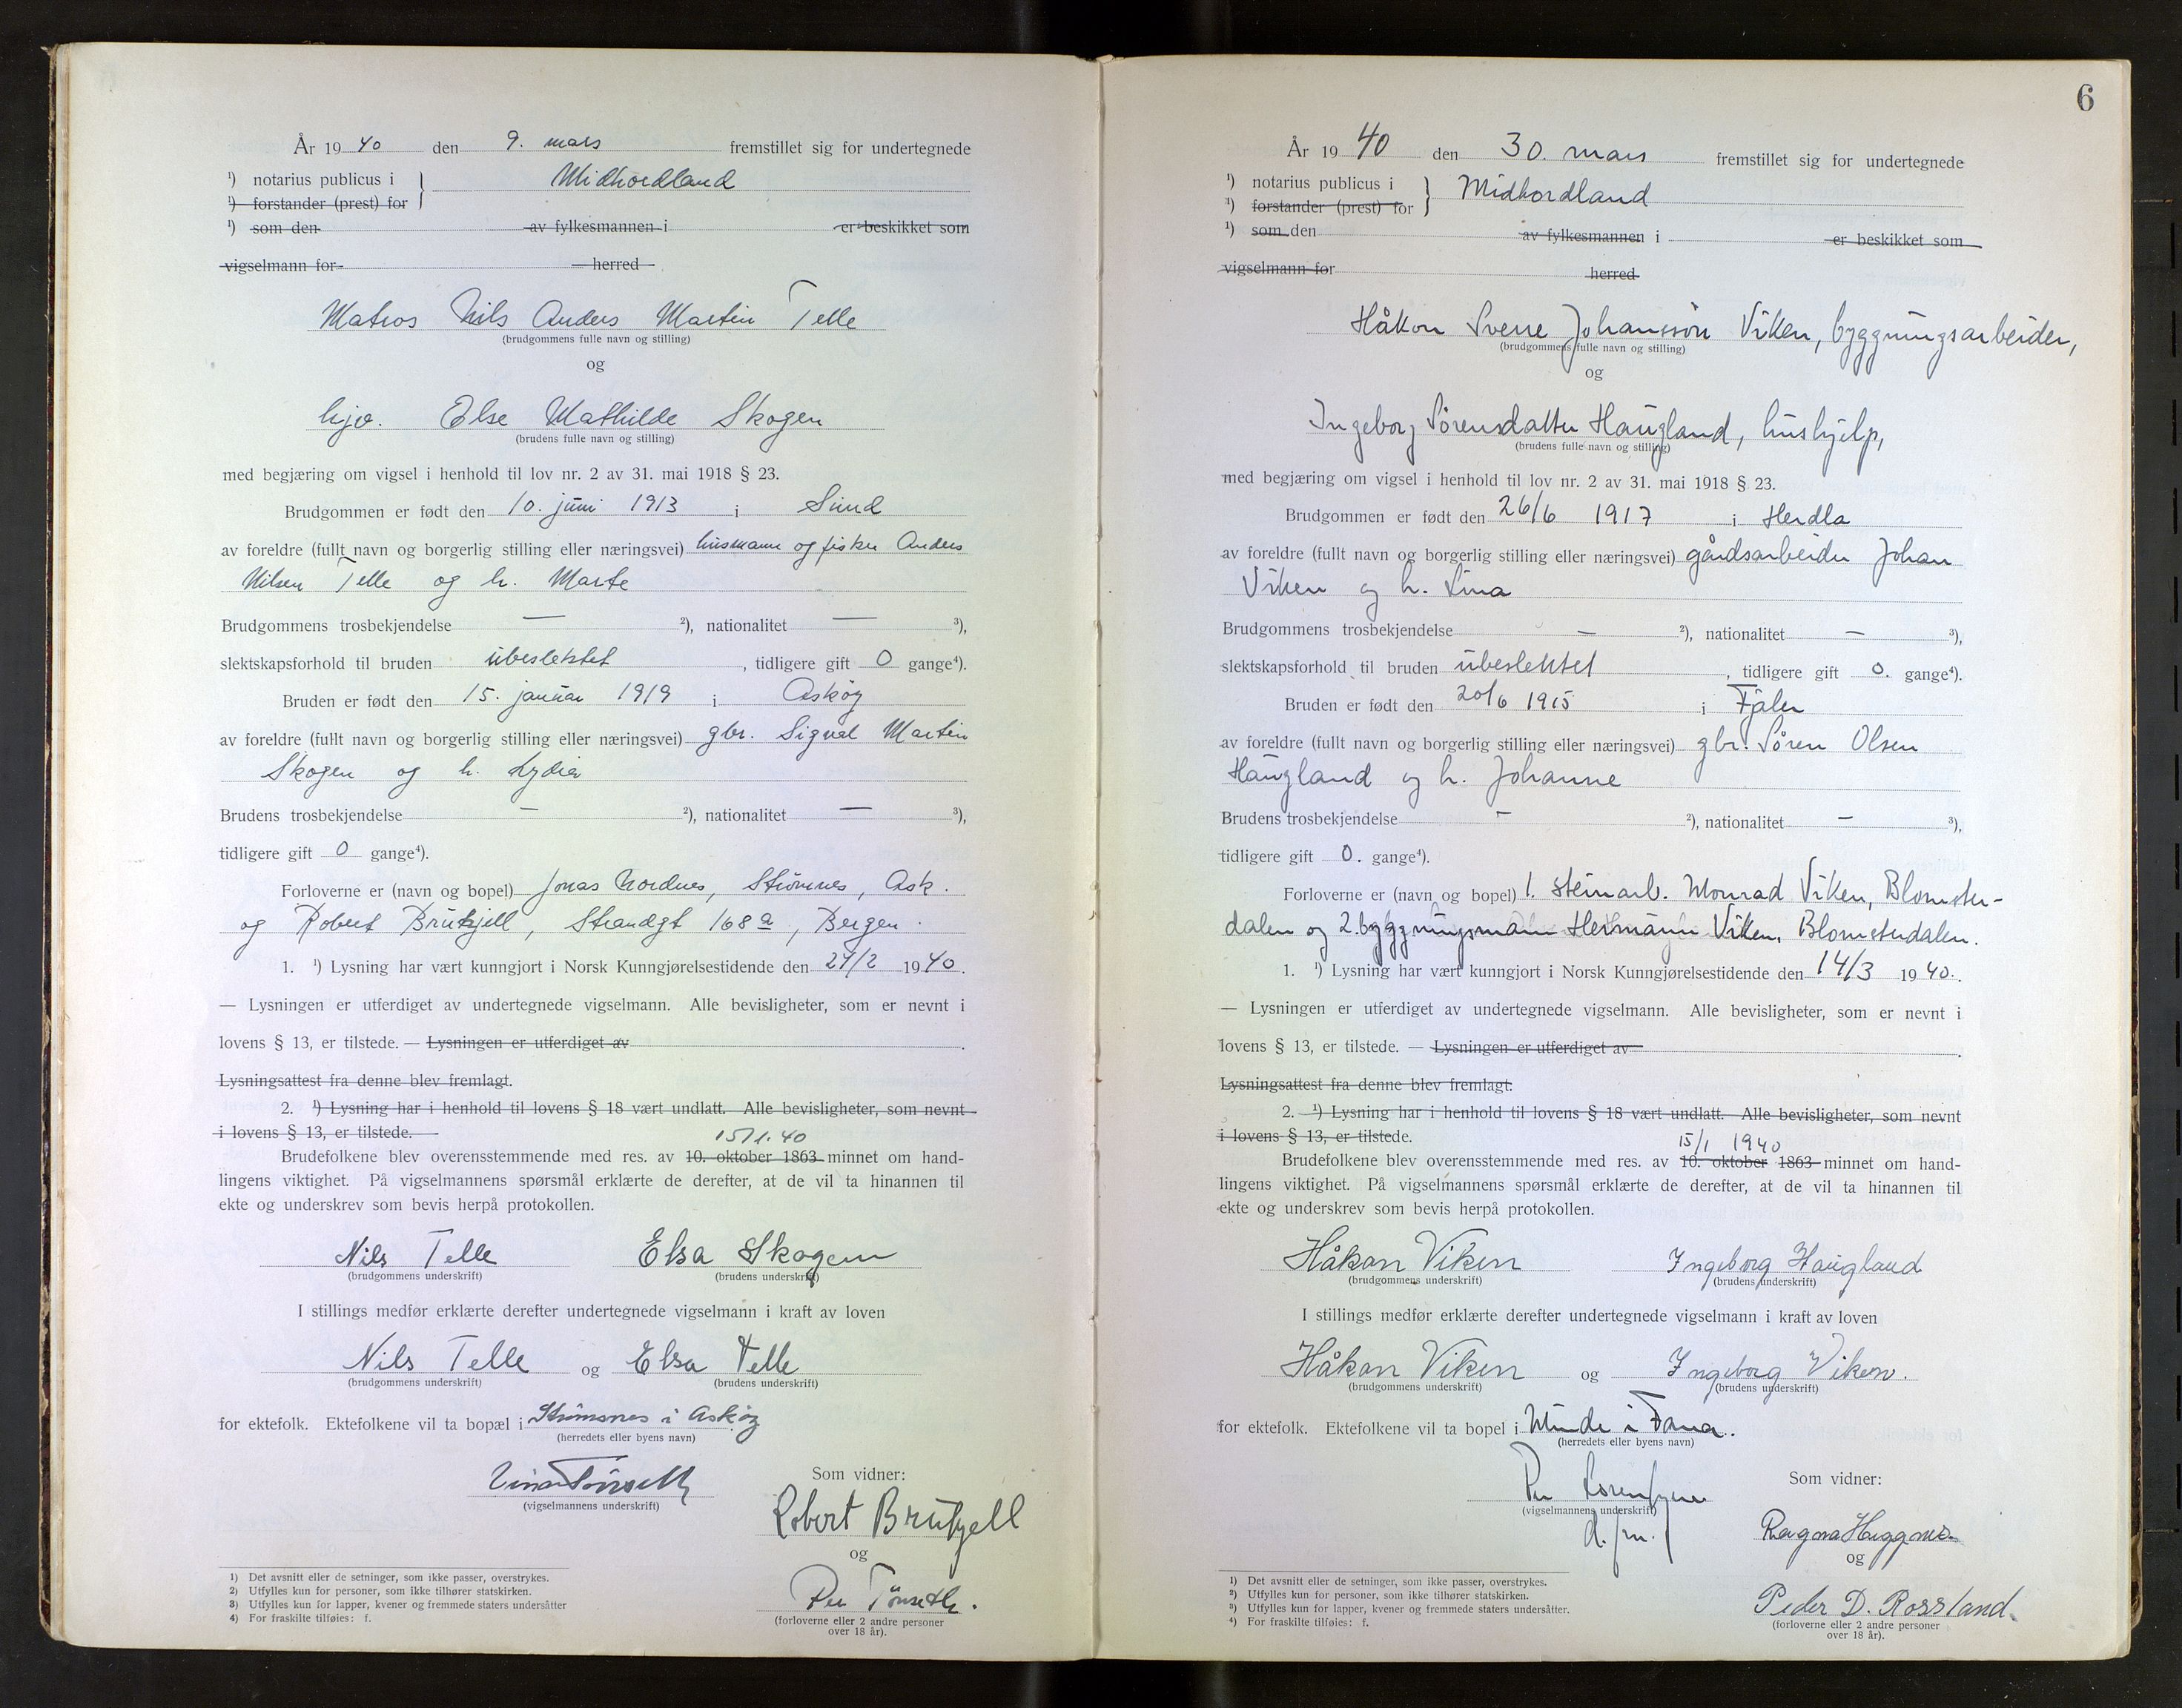 År 1940 den 9. mars fremstillet sig for undertegnede
¹) notarius publicus i } Midhordland
¹) forstander (prest) for
¹) som den av fylkesmannen i er beskikket som
vigselmann for herred
Matros Nils Anders Martin Telle
(brudgommens fulle navn og stilling)
og
hjv. Else Mathilde Skogen
(brudens fulle navn og stilling)
med begjæring om vigsel i henhold til lov nr. 2 av 31. mai 1918 § 23.
Brudgommen er født den 10. juni 1913 i Sund
av foreldre (fullt navn og borgerlig stilling eller næringsvei) husmann og fisker Anders
Nilsen Telle og h. Marte
Brudgommens trosbekjendelse — ²), nationalitet — ³),
slektskapsforhold til bruden ubeslektet, tidligere gift 0 gange⁴).
Bruden er født den 15. januar 1919 i Askøy
av foreldre (fullt navn og borgerlig stilling eller næringsvei) gbr. Sigval Martin
Skogen og h. Lydia
Brudens trosbekjendelse — ²), nationalitet — ³),
tidligere gift 0 gange⁴).
Forloverne er (navn og bopel) Jonas Nordnes, Strømnes, Ask.
og Robert Brufjell, Strandgt 168a, Bergen.
1. ¹) Lysning har vært kunngjort i Norsk Kunngjørelsestidende den 27/2 1940.
— Lysningen er utferdiget av undertegnede vigselmann. Alle bevisligheter, som er nevnt i
lovens § 13, er tilstede. — Lysningen er utferdiget av .
Lysningsattest fra denne blev fremlagt.
2. ¹) Lysning har i henhold til lovens § 18 vært undlatt. Alle bevisligheter, som nevnt
i lovens § 13, er tilstede.
15/1.40
Brudefolkene blev overensstemmende med res. av 10. oktober 1863 minnet om hand-
lingens viktighet. På vigselmannens spørsmål erklærte de derefter, at de vil ta hinannen til
ekte og underskrev som bevis herpå protokollen.
Nils Telle Elsa Skogen
(brudgommens underskrift) (brudens underskrift)
I stillings medfør erklærte derefter undertegnede vigselmann i kraft av loven
Nils Telle og Elsa Telle
(brudgommens underskrift) (brudens underskrift)
for ektefolk. Ektefolkene vil ta bopæl i Strömsnes i Askøy.
(herredets eller byens navn)
Som vidner:
(vigselmannens underskrift)
Robert Brufjell
og
Per Tönseth.
(forloverne eller 2 andre personer
over 18 år).
1) Det avsnitt eller de setninger, som ikke passer, overstrykes.
2) Utfylles kun for personer, som ikke tilhører statskirken.
3) Utfylles kun for lapper, kvener og fremmede staters undersåtter
4) For fraskilte tilføies: f.
6
År 1940 den 30. mars fremstillet sig for undertegnede
¹) notarius publicus i } Midhordland
¹) forstander (prest) for
¹) som den av fylkesmannen i er beskikket som
vigselmann for herred
Håkon Sverre Johansson Viken, byggningsarbeider,
(brudgommens fulle navn og stilling)
og
Ingeborg Sørensdatter Haugland, hushjelp,
(brudens fulle navn og stilling)
med begjæring om vigsel i henhold til lov nr. 2 av 31. mai 1918 § 23.
Brudgommen er født den 26/6 1917 i Herdla
av foreldre (fullt navn og borgerlig stilling eller næringsvei) gårdsarbeider Johan
Viken og h. Sina
Brudgommens trosbekjendelse — ²), nationalitet — ³),
slektskapsforhold til bruden ubeslektet, tidligere gift 0. gange⁴).
Bruden er født den 20/6 1915 i Fjaler
av foreldre (fullt navn og borgerlig stilling eller næringsvei) gbr. Søren Olsen
Haugland og h. Johanne
Brudens trosbekjendelse — ²), nationalitet — ³),
tidligere gift 0. gange⁴).
Forloverne er (navn og bopel) 1. steinarb. Monrad Viken, Blomster-
dalen og 2. byggningsmann Hermann Viken, Blomsterdalen.
1. ¹) Lysning har vært kunngjort i Norsk Kunngjørelsestidende den 14/3 1940.
— Lysningen er utferdiget av undertegnede vigselmann. Alle bevisligheter, som er nevnt i
lovens § 13, er tilstede. — Lysningen er utferdiget av .
Lysningsattest fra denne blev fremlagt.
2. ¹) Lysning har i henhold til lovens § 18 vært undlatt. Alle bevisligheter, som nevnt
i lovens § 13, er tilstede.
15/1 1940
Brudefolkene blev overensstemmende med res. av 10. oktober 1863 minnet om hand-
lingens viktighet. På vigselmannens spørsmål erklærte de derefter, at de vil ta hinannen til
ekte og underskrev som bevis herpå protokollen.
Håkon Viken Ingeborg Haugland
(brudgommens underskrift) (brudens underskrift)
I stillings medfør erklærte derefter undertegnede vigselmann i kraft av loven
Håkon Viken og Ingeborg Viken.
(brudgommens underskrift) (brudens underskrift)
for ektefolk. Ektefolkene vil ta bopel i Minde i Fana.
(herredets eller byens navn)
Som vidner:
Per
(vigselmannens underskrift)
d. fm.
Ragna
og
Peder D. Rossland
(forloverne eller 2 andre personer
over 18 år).
1) Det avsnitt eller de setninger, som ikke passer, overstrykes.
2) Utfylles kun for personer, som ikke tilhører statskirken.
3) Utfylles kun for lapper, kvener og fremmede staters undersåtter.
4) For fraskilte tilføies: f.